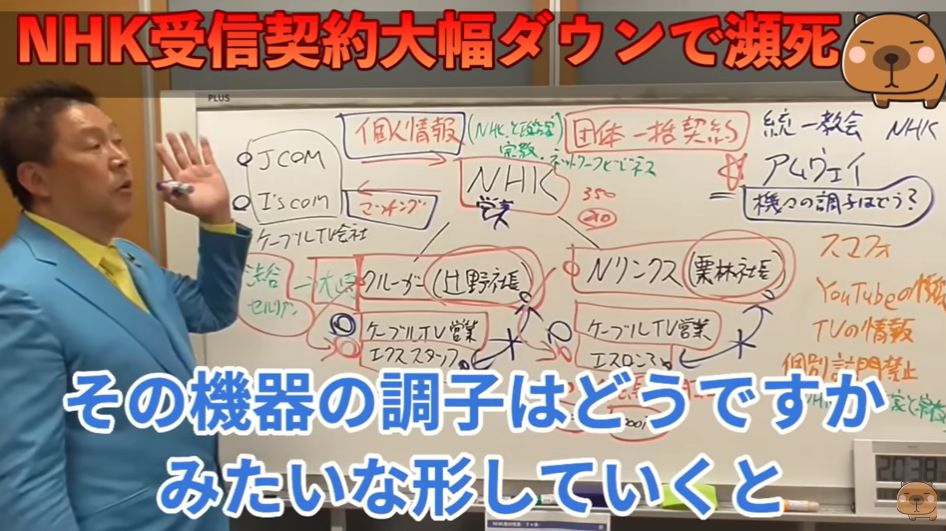 NHK受信契約大幅ダウンで瀕死
PLUS
JCOM
I's com
ケーブルTV会社
個人情報
マッチング
NHK
営業
団体一括契約
ネットワークビジネス
宗教・
350
統一教会
NHK
アムウェイ
機々の調子はどう?
スマフォ
YouTubeの
TVの情報
個別訪問禁止
渋谷
セルリアン
クルーガー(辻野社長)
ケーブルTV営業
エクススタッフ
Nリンクス(栗林社長)
ケーブルTV営業
その機器の調子はどうですか
みたいな形していくと
20:38